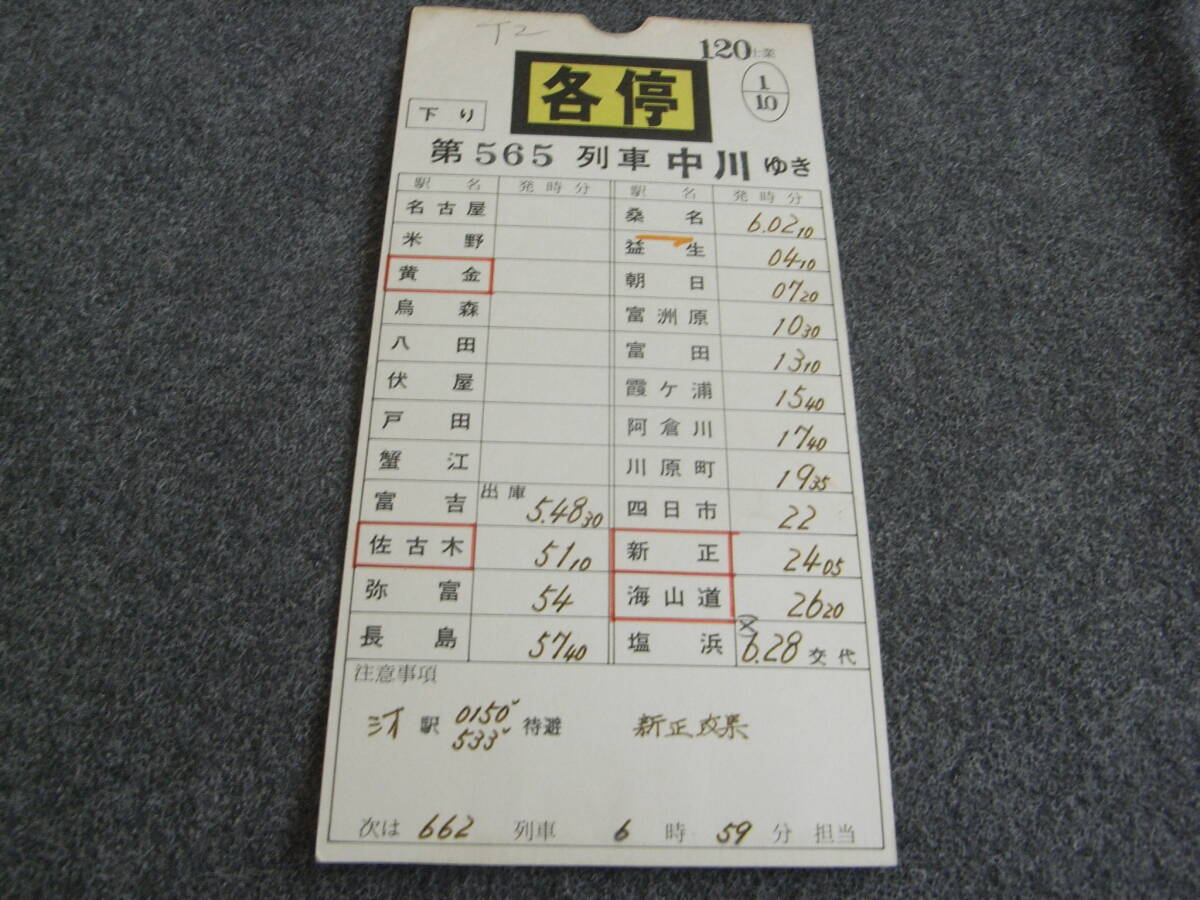 T2
120仕業
各停
1
10
下り
第565列車 中川ゆき
駅名 発時分 駅名 発時分
名古屋 桑名 6.02 10
米野 益生 04 10
黄金 朝日 07 20
烏森 富洲原 10 30
八田 富田 13 10
伏屋 霞ケ浦 15 40
戸田 阿倉川 17 40
蟹江 川原町 19 35
富吉 出庫 5.48 30 四日市 22
佐古木 51 10 新正 24 05
弥富 54 海山道 26 20
長島 57 40 塩浜 6.28 交代
注意事項
駅 0150 待避 新正改集
533
次は 662 列車 6 時 59 分 担当